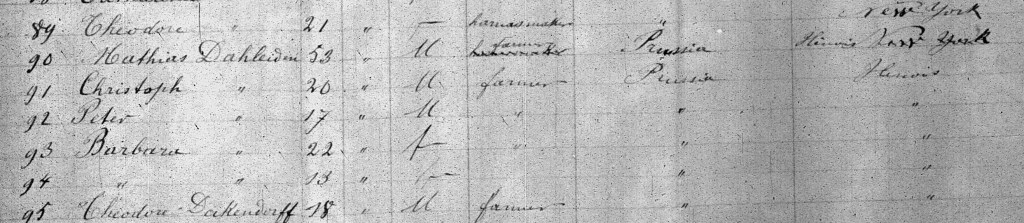 New York
89 Theodore " 21 " f harnasmaker "
90 Mathias Dahleiden 53 " M farmer Prussia Illinois New York
91 Christoph " 20 " M farmer Prussia Illinois
92 Peter " 17 " M " " "
93 Barbara " 22 " f " "
94 " " 13 " f " "
95 Theodore Dackendorff 18 " M farmer " "